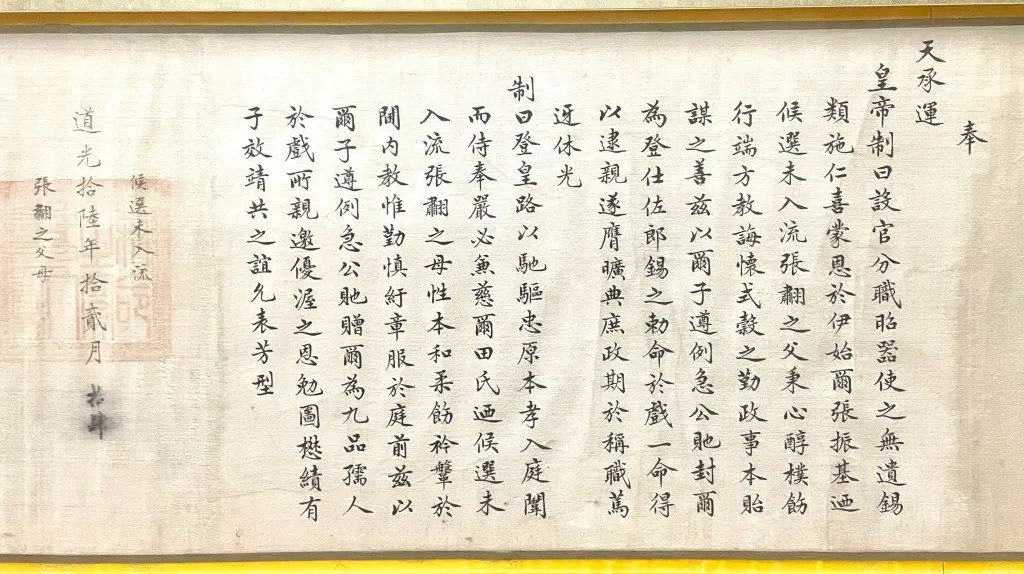 奉
天承運
皇帝制曰設官分職昭器使之無遺錫
類施仁喜蒙恩於伊始爾張振基迺
候選未入流張翿之父秉心醇樸飭
行端方教誨懷式穀之勤政事本貽
謀之善茲以爾子遵例急公貤封爾
為登仕佐郎錫之勅命於戲一命得
以逮親遂膺曠典庶政期於稱職篤
迓休光
制曰登皇路以馳驅忠原本孝入庭闈
而侍奉嚴必兼慈爾田氏迺候選未
入流張翿之母性本和柔飭衿鞶於
閫内教惟勤慎紆章服於庭前茲以
爾子遵例急公貤贈爾為九品孺人
於戲所親邀優渥之恩勉圖懋績有
子效靖共之誼允表芳型
候選未入流
道光拾陸年拾貳月 拾肆
張翿之父母